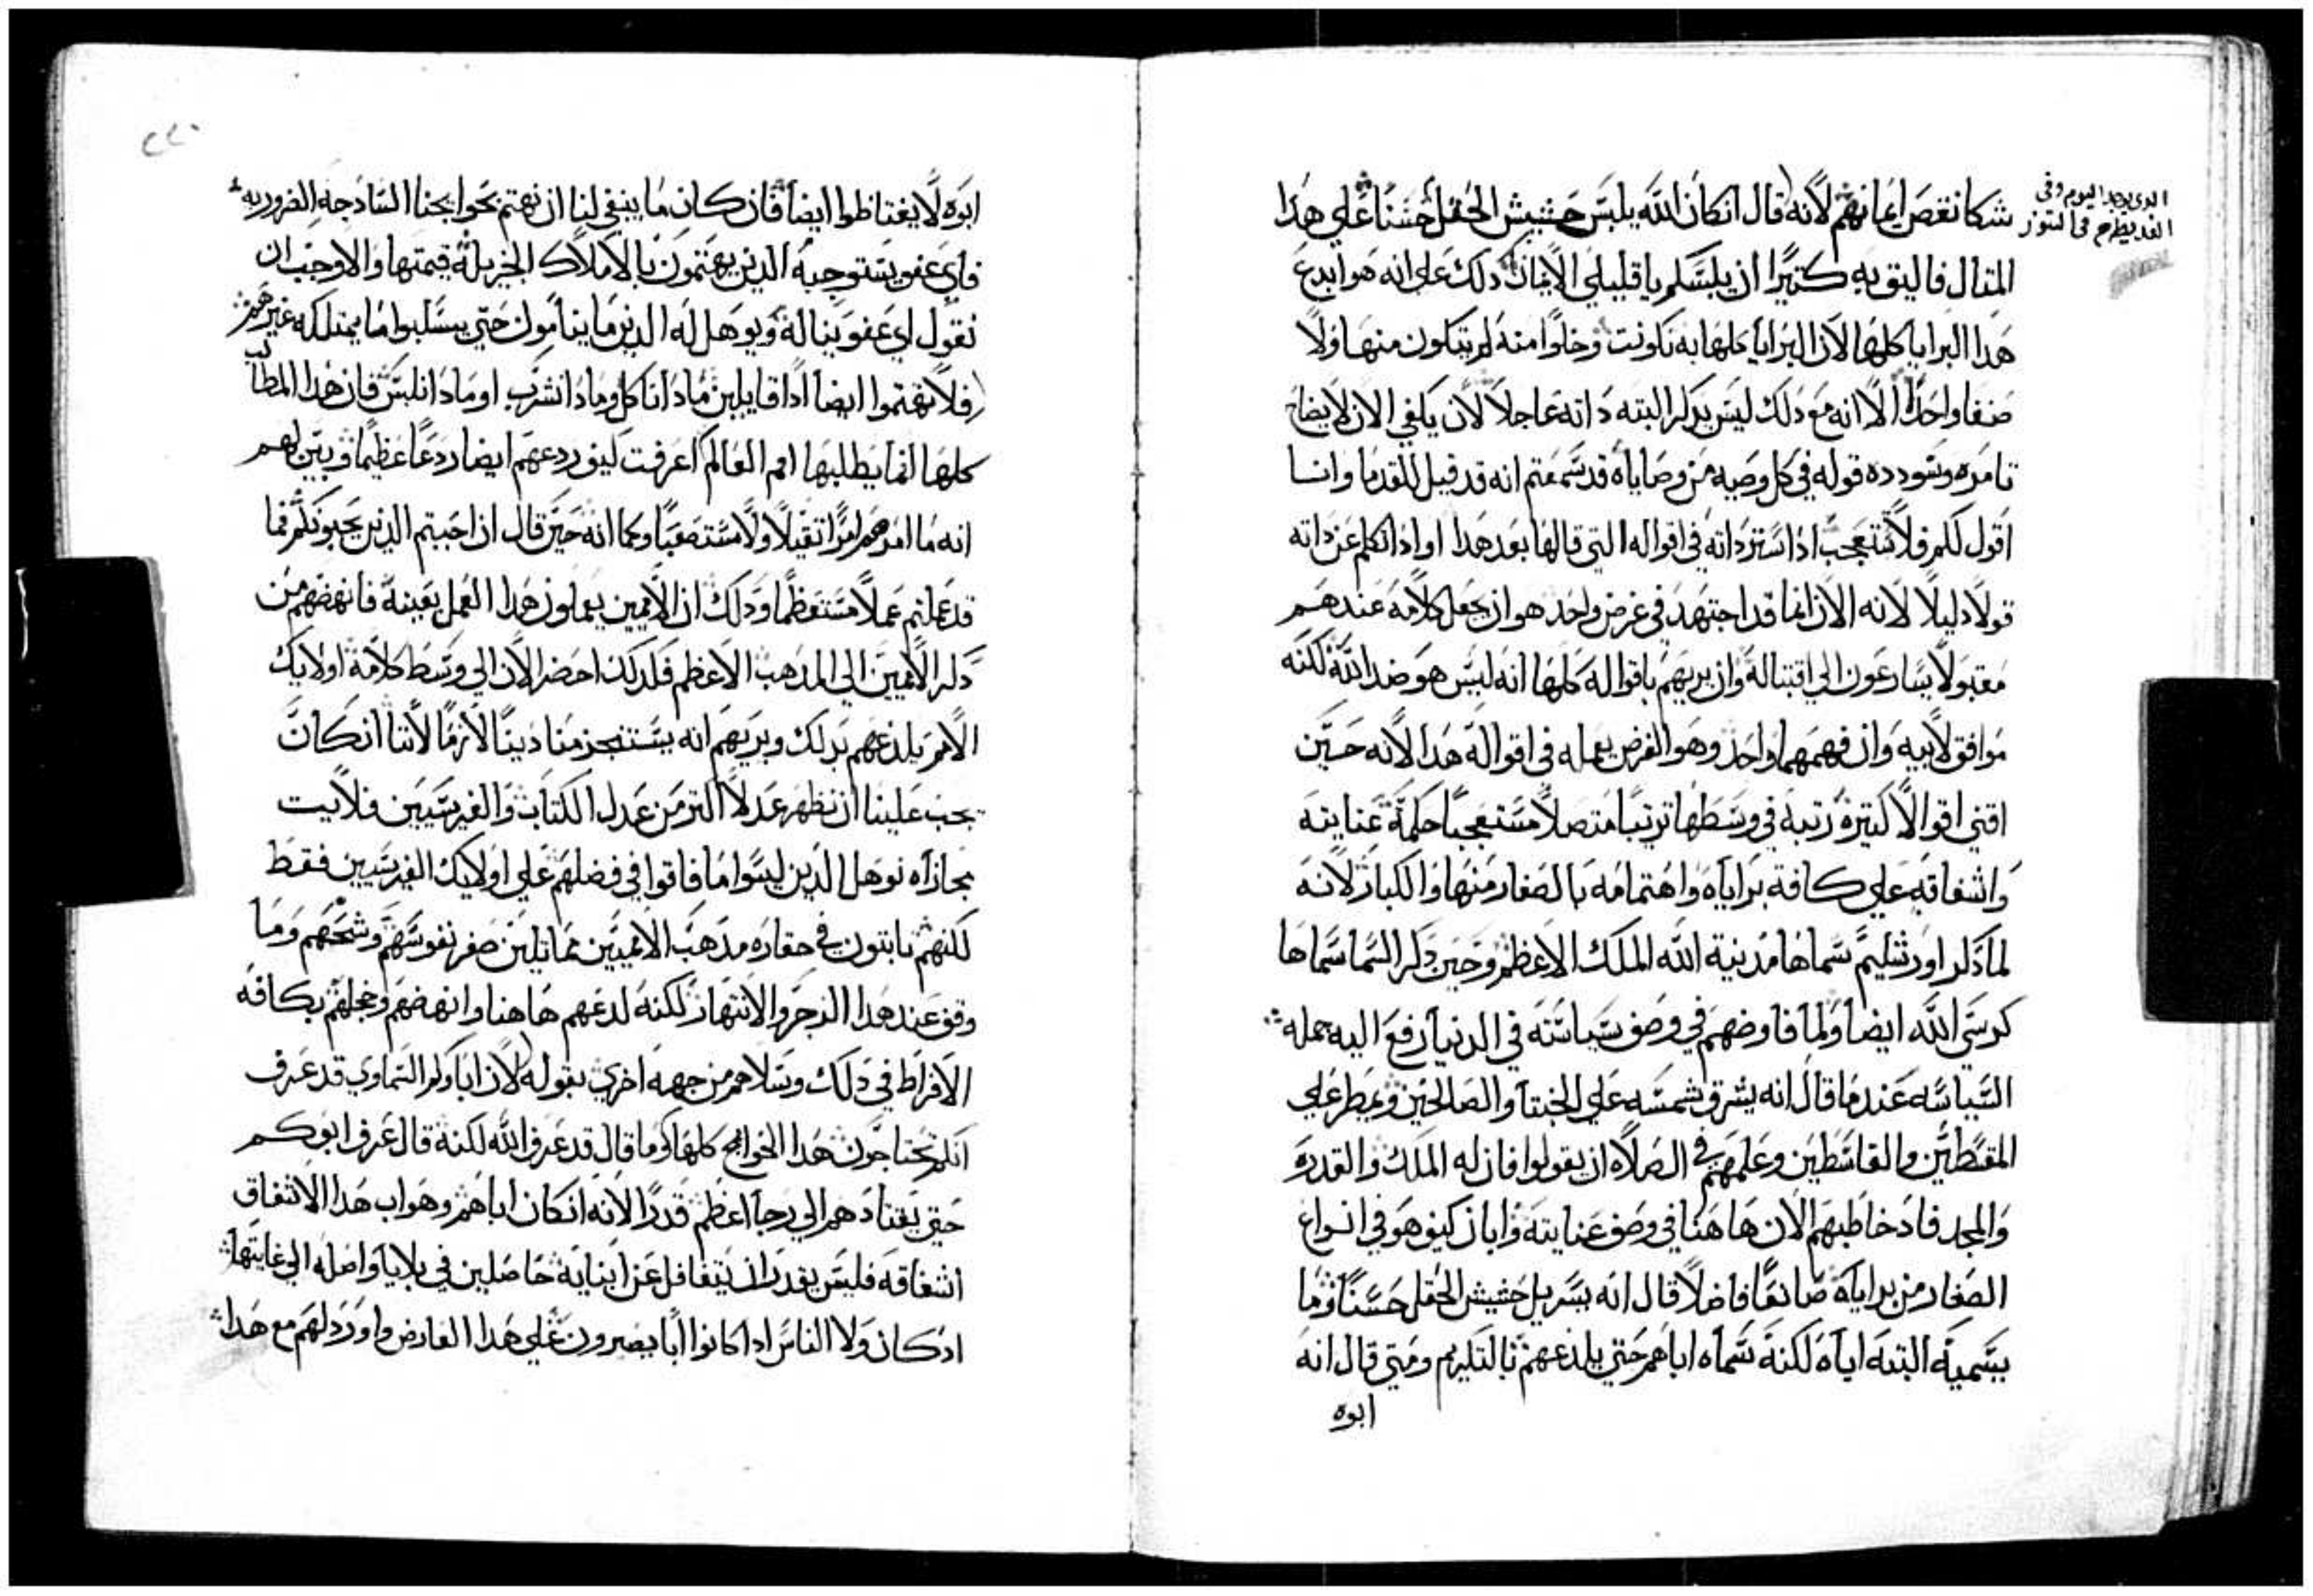 الدى يوجد اليوم وفى
الغد يطرح فى التنور
شكا نقص ايمانهم لانه قال ان كان الله يلبس حشيش الحقل حسنا على هدا
المثال فاليق به كتيرا ان يلبسكم يا قليلي الايمان دلك على انه هو ابدع
هدا البرايا كلها لان البرايا كلها به تكونت وخلوا منه لم يتكون منها ولا
صنفا واحدا الا انه مع دلك ليس يدكر البته داته عاجلا لان يكفي الان لايضاح
تامره وسودده قوله في كل وصيه من وصاياه قد سمعتم انه قد قيل للقدما وانا
اقول لكم فلا تتعجب ادا ستر داته في اقواله التي قالها بعد هدا او ادا تكلم عن داته
قولا دليلا لانه الان انما قد اجتهد في غرض واحد هو ان يجعل كلامه عندهم
مقبولا يسارعون الي اقتباله وان يريهم باقواله كلها انه ليس هو ضد الله لكنه
موافق لابيه وان فهمهما واحد وهو الغرض يعمله في اقواله هدا لانه حين
اقتني اقوالا كتيره رتبه في وسطها ترتيبا متصلا مستعجبا حكمة عنايته
واشفاقه علي كافة براياه واهتمامه بالصغار منها والكبار لانه
لما دكر اورشليم سماها مدينة الله الملك الاعظم وحين دكر السما سماها
كرسي الله ايضا ولما فاوضهم في وصف سياسته في الدنيا رفع اليه جمله
السياسه عندما قال انه يشرق شمسه علي الخبتا والصالحين ويمطر علي
المقسطين والقاسطين وعلمهم في الصلاه ان يقولوا فان له الملك والقدره
والمجد فاد خاطبهم الان هاهنا في وصف عنايته وابان كيف هو في انواع
الصغار من براياه صانعا فاضلا قال انه يسربل حشيش الحقل حسنا وما
يسميه البته اياه لكنه سماه اباهم حتي يلدعهم بالتكريم ومتي قال انه
ابوه
٢٢٠
ابوه لا يغتاظوا ايضا فان كان ما ينبغي لنا ان نهتم بحوايجنا السادجه الضروريه
فاي عفو يستوجبه الدين يهتمون بالاملاك الجزيلة قيمتها والاوجب ان
نقول اي عفو يناله ويوهل له الدين ما ينامون حتي يسلبوا ما يمتلكه غيرهم
فلا تهتموا ايضا ادا قايلين مادا ناكل ومادا نشرب او مادا نلبس فان هدا المطالب
كلها انما يطلبها امم العالم اعرفت كيف ردعهم ايضا ردعا عظيما وبين لهم
انه ما امرهم امرا تقيلا ولا مستصعبا وكما انه حين قال ان احببتم الدين يحبونكم فما
قد عملتم عملا مستعظما ودلك ان الامميين يعملون هدا العمل بعينة فانهضهم من
دكر الامميين الي المدهب الاعظم فلدلك احضر الان الي وسط كلامه اولايك
الامم يلدعهم بدلك ويريهم انه يستنجز منا دينا لازما لاننا ان كان
يجب علينا ان نظهر عدلا اكتر من عدل الكتاب والفريسيين فلايت
مجازاه نوهل الدين ليسوا ما فاقوا في فضلهم علي اولايك الفريسيين فقط
لكنهم تابتون في حقاره مدهب الامميين مماتلين صغر نفوسهم وشحهم وما
وقف عند هدا الزجر والانتهار لكنه لدعهم هاهنا وانهضهم وخجلهم بكافه
الافراط في دلك وسلاهم من جهه اخري بقوله لان اباكم السماوي قد عرف
انكم تحتاجون هدا الحوايج كلها وما قال قد عرف الله لكنه قال عرف ابوكم
حتي يقتادهم الي رجا اعظم قدرا لانه ان كان اباهم وهو اب هدا الاشفاق
اشفاقه فليس يقدر ان يتغافل عن ابنايه حاصلين في بلايا واصله الي غايتها
اد كان ولا الناس ادا كانوا ابا يصبرون علي هدا العارض واورد لهم مع هدا